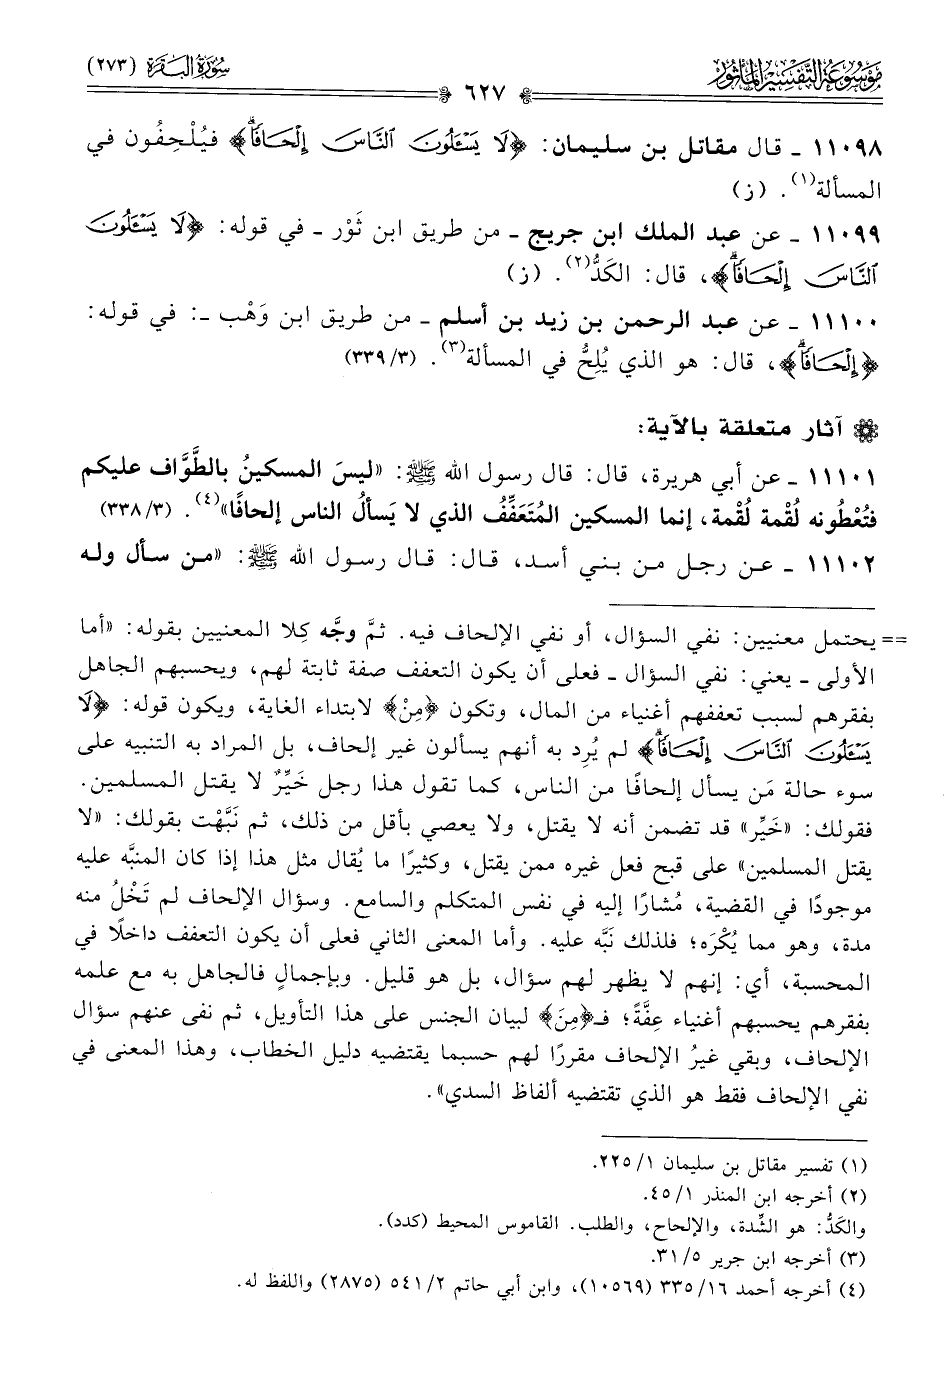 مَوْسُوعَةُ التَّفْسِيرِ المَأْثُورِ
سُورَةُ البَقَرَةِ (٢٧٣)
٦٢٧
١١٠٩٨ ـ قال مقاتل بن سليمان: ﴿لَا يَسْـَٔلُونَ النَّاسَ إِلْحَافًا﴾ فيُلْحِفُون في
المسألة(١). (ز)
١١٠٩٩ ـ عن عبد الملك ابن جريج ـ من طريق ابن ثَوْر ـ في قوله: ﴿لَا يَسْـَٔلُونَ
النَّاسَ إِلْحَافًا﴾، قال: الكَدُّ(٢). (ز)
١١١٠٠ ـ عن عبد الرحمن بن زيد بن أسلم ـ من طريق ابن وَهْب ـ: في قوله:
﴿إِلْحَافًا﴾، قال: هو الذي يُلِحُّ في المسألة(٣). (٣٣٩/٣)
آثار متعلقة بالآية:
١١١٠١ ـ عن أبي هريرة، قال: قال رسول الله ﷺ: «ليسَ المسكينُ بالطَّوَّاف عليكم
فتُعْطُونه لُقْمة لُقْمة، إنما المسكين المُتَعَفِّفُ الذي لا يَسألُ الناس إلحافًا»(٤). (٣٣٨/٣)
١١١٠٢ ـ عن رجل من بني أسد، قال: قال رسول الله ﷺ: «من سأل وله
== يحتمل معنيين: نفي السؤال، أو نفي الإلحاف فيه. ثمَّ وجَّه كِلا المعنيين بقوله: «أما
الأولى ـ يعني: نفي السؤال ـ فعلى أن يكون التعفف صفة ثابتة لهم، ويحسبهم الجاهل
بفقرهم لسبب تعففهم أغنياء من المال، وتكون ﴿مِنْ﴾ لابتداء الغاية، ويكون قوله: ﴿لَا
يَسْـَٔلُونَ النَّاسَ إِلْحَافًا﴾ لم يُرِد به أنهم يسألون غير إلحاف، بل المراد به التنبيه على
سوء حالة مَن يسأل إلحافًا من الناس، كما تقول هذا رجل خَيِّرٌ لا يقتل المسلمين.
فقولك: «خَيِّر» قد تضمن أنه لا يقتل، ولا يعصي بأقل من ذلك، ثم نَبَّهْت بقولك: «لا
يقتل المسلمين» على قبح فعل غيره ممن يقتل، وكثيرًا ما يُقال مثل هذا إذا كان المنبَّه عليه
موجودًا في القضية، مُشارًا إليه في نفس المتكلم والسامع. وسؤال الإلحاف لم تَخْلُ منه
مدة، وهو مما يُكْرَه؛ فلذلك نَبَّه عليه. وأما المعنى الثاني فعلى أن يكون التعفف داخلًا في
المحسبة، أي: إنهم لا يظهر لهم سؤال، بل هو قليل. وبإجمالٍ فالجاهل به مع علمه
بفقرهم يحسبهم أغنياء عِفَّةً؛ فـ﴿مِنَ﴾ لبيان الجنس على هذا التأويل، ثم نفى عنهم سؤال
الإلحاف، وبقي غيرُ الإلحاف مقررًا لهم حسبما يقتضيه دليل الخطاب، وهذا المعنى في
نفي الإلحاف فقط هو الذي تقتضيه ألفاظ السدي».
(١) تفسير مقاتل بن سليمان ١/ ٢٢٥.
(٢) أخرجه ابن المنذر ١/ ٤٥.
والكَدُّ: هو الشِّدة، والإلحاح، والطلب. القاموس المحيط (كدد).
(٣) أخرجه ابن جرير ٥/ ٣١.
(٤) أخرجه أحمد ١٦/ ٣٣٥ (١٠٥٦٩)، وابن أبي حاتم ٢/ ٥٤١ (٢٨٧٥) واللفظ له.